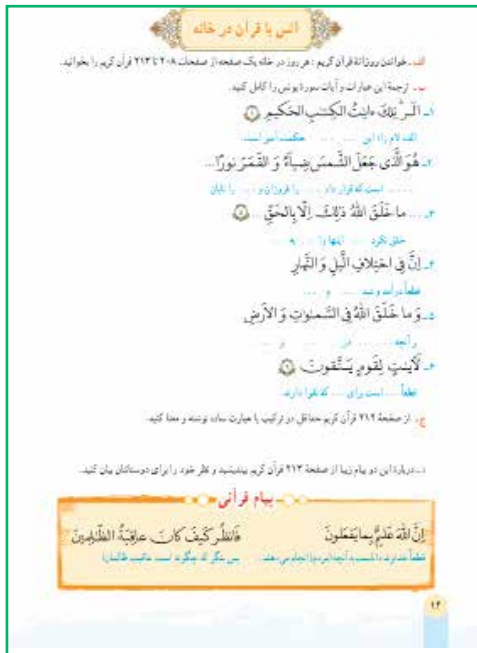 انس با قرآن در خانه
الف ـ خواندن روزانهٔ قرآن کریم : هر روز در خانه یک صفحه از صفحات ۲۰۸ تا ۲۱۳ قرآن کریم را بخوانید.
ب ـ ترجمهٔ این عبارات و آیات سورهٔ یونس را کامل کنید.
۱ـ الٓر تِلكَ ءایٰتُ الكِتٰبِ الحَكیمِ ۱
الف لام را؛ این ..... ..... حکمت آمیز است.
۲ـ هُوَ الَّذی جَعَلَ الشَّمسَ ضِیاءً وَ القَمَرَ نورًا...
..... است که قرار داد ..... را فروزان و ..... را تابان
۳ـ ... ما خَلَقَ اللّٰهُ ذٰلِكَ اِلّا بِالحَقِّ ... ۵
خلق نکرد ..... اینها را ..... به .....
۴ـ اِنَّ فِی اختِلافِ الَّیلِ وَ النَّهارِ
قطعاً در آمد و شد ..... و .....
۵ـ وَ ما خَلَقَ اللّٰهُ فِی السَّمٰواتِ وَ الاَرضِ
و آنچه ..... در ..... و .....
۶ـ لَآیٰتٍ لِقَومٍ یَتَّقونَ ۶
قطعاً ..... است برای ..... که تقوا دارند.
ج ـ از صفحهٔ ۲۱۲ قرآن کریم حداقل دو ترکیب یا عبارت ساده نوشته و معنا کنید.
د ـ دربارهٔ این دو پیام زیبا از صفحهٔ ۲۱۳ قرآن کریم بیندیشید و نظر خود را برای دوستانتان بیان کنید.
پیام قرآنی
اِنَّ اللّٰهَ عَلیمٌ بِما یَفعَلونَ فَانظُر كَیفَ كانَ عاقِبَةُ الظّٰلِمینَ
قطعاً خداوند دانا است به آنچه (مردم) انجام می دهند. پس بنگر که چگونه است عاقبت ظالمان!
۱۴